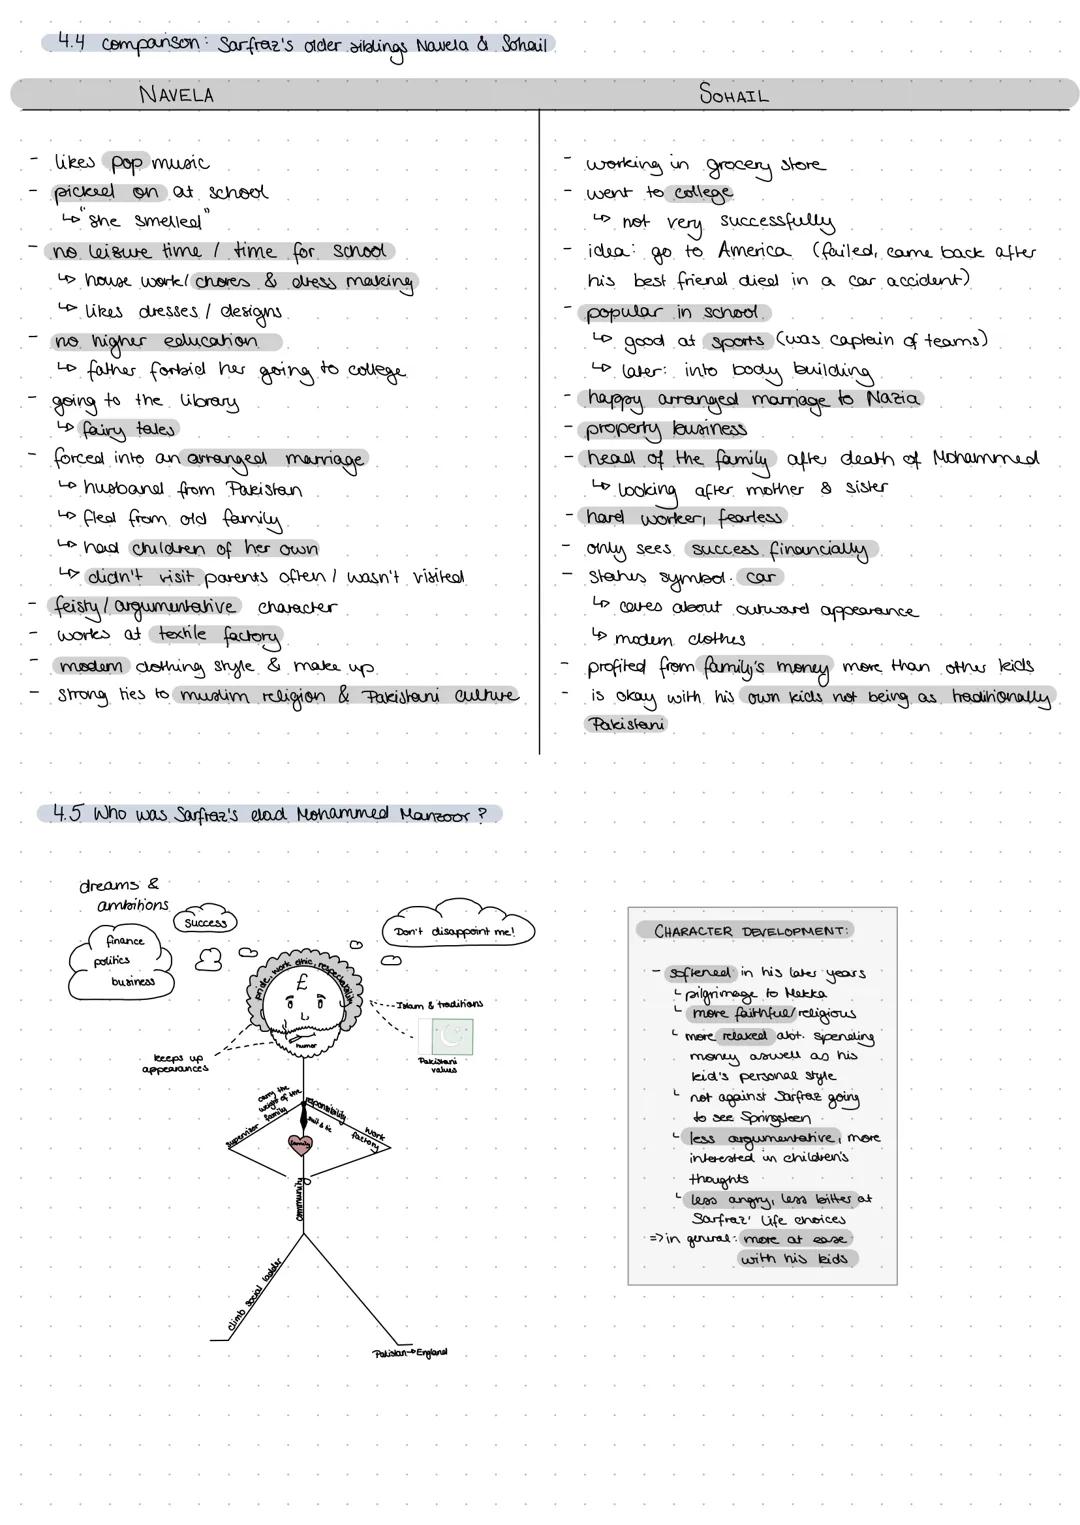 4.4 comparison: Sarfraz's older siblings Navela & Sohail
NAVELA
- likes pop music
- picked on at school
↳ "she smelled"
- no leisure time / time for school
↳ house work / chores & dress making
↳ likes dresses / designs
- no higher education
↳ father forbid her going to college
- going to the library
↳ fairy tales
- forced into an arranged marriage
↳ husband from Pakistan
↳ fled from old family
↳ had children of her own
↳ didn't visit parents often / wasn't visited
- feisty / argumentative character
- works at textile factory
- modern clothing style & make up
- strong ties to muslim religion & Pakistani culture
SOHAIL
- working in grocery store
- went to college
↳ not very successfully
- idea: go to America (failed, came back after
his best friend died in a car accident)
- popular in school
↳ good at sports (was captain of teams)
↳ later: into body building
- happy arranged marriage to Nazia
- property business
- head of the family after death of Mohammed
↳ looking after mother & sister
- hard worker, fearless
- only sees success financially
- status symbol: car
↳ cares about outward appearance
↳ modern clothes
- profited from family's money more than other kids
- is okay with his own kids not being as traditionally
Pakistani
4.5 Who was Sarfraz's dad Mohammed Manzoor?
dreams &
ambitions
finance
politics
business
Success
Don't disappoint me!
pride, work ethic, respectability
£
humor
Islam & traditions
Pakistani
values
keeps up
appearances
carry the
weight of the
family
supervisor
responsibility
suit & tie
work
factory
family
community
climb social ladder
Pakistan→England
CHARACTER DEVELOPMENT:
- softened in his later years
↳ pilgrimage to Mekka
↳ more faithful/religious
↳ more relaxed abt. spending
money aswell as his
kid's personal style
↳ not against Sarfraz going
to see Springsteen
↳ less argumentative, more
interested in children's
thoughts
↳ less angry, less bitter at
Sarfraz' life choices
=> in general: more at ease
with his kids